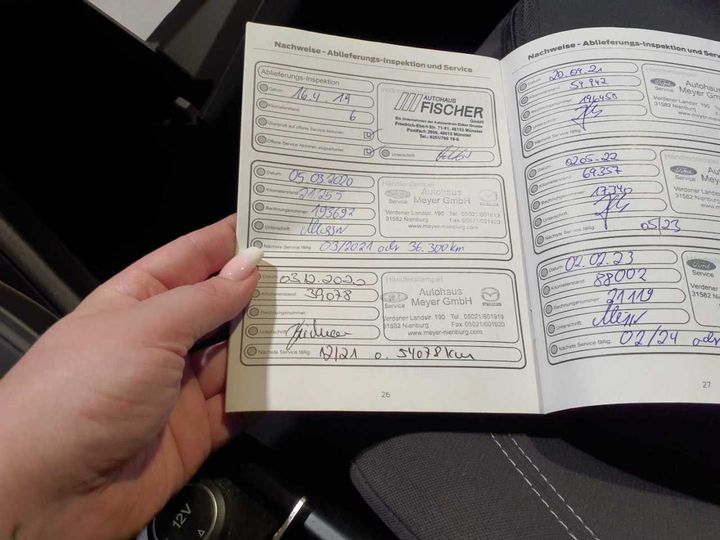 Nachweise - Ablieferungs-Inspektion und Service
Ablieferungs-Inspektion
Datum: 16.4.19
Kilometerstand: 6
Überprüft auf offene Service Aktionen:
Offene Service Aktionen abgearbeitet:
Unterschrift
AUTOHAUS
FISCHER
GmbH
Ein Unternehmen der Autozentrum Ebker Gruppe
Friedrich-Ebert-Str.
Datum: 05.03.2020
Kilometerstand: 21255
Rechnungsnummer: 193692
Unterschrift:
Nächste Service fällig: 03/2021 oder 36.300 km
Händlerstempel
Autohaus
Meyer GmbH
Service
Verdener Landstr. 190 Tel. 05021/601919
31582 Nienburg Fax 05021/601920
www.meyer-nienburg.com
Datum: 03.12.2020
Kilometerstand: 39078
Rechnungsnummer:
Unterschrift:
Nächste Service fällig: 12/21 o. 54078 km
Händlerstempel
Autohaus
Meyer GmbH
Verdener Landstr. 190 Tel. 05021/601919
31582 Nienburg Fax 05021/601920
www.meyer-nienburg.com
26
Nachweise - Ablieferungs-Inspektion und Serv
Datum: 20.04.21
54.942
196450
Ford
Service
Autohaus
Meyer Gm
Verdener Landstr. 190
31582 Nienburg
www.mey
Datum: 02.05.22
Kilometerstand: 69357
Rechnungsnummer: 17340
Unterschrift:
Nächste Service fällig: 05/23
Ford
Service
Autohaus
Meyer Gm
Verdener Landstr.
31582 Nienburg
Datum: 02.02.23
Kilometerstand: 88002
Rechnungsnummer: 21119
Unterschrift:
Nächste Service fällig: 02/24 oder
Ford
Service
Verdener Lands
31582 Nienbu
27
12V